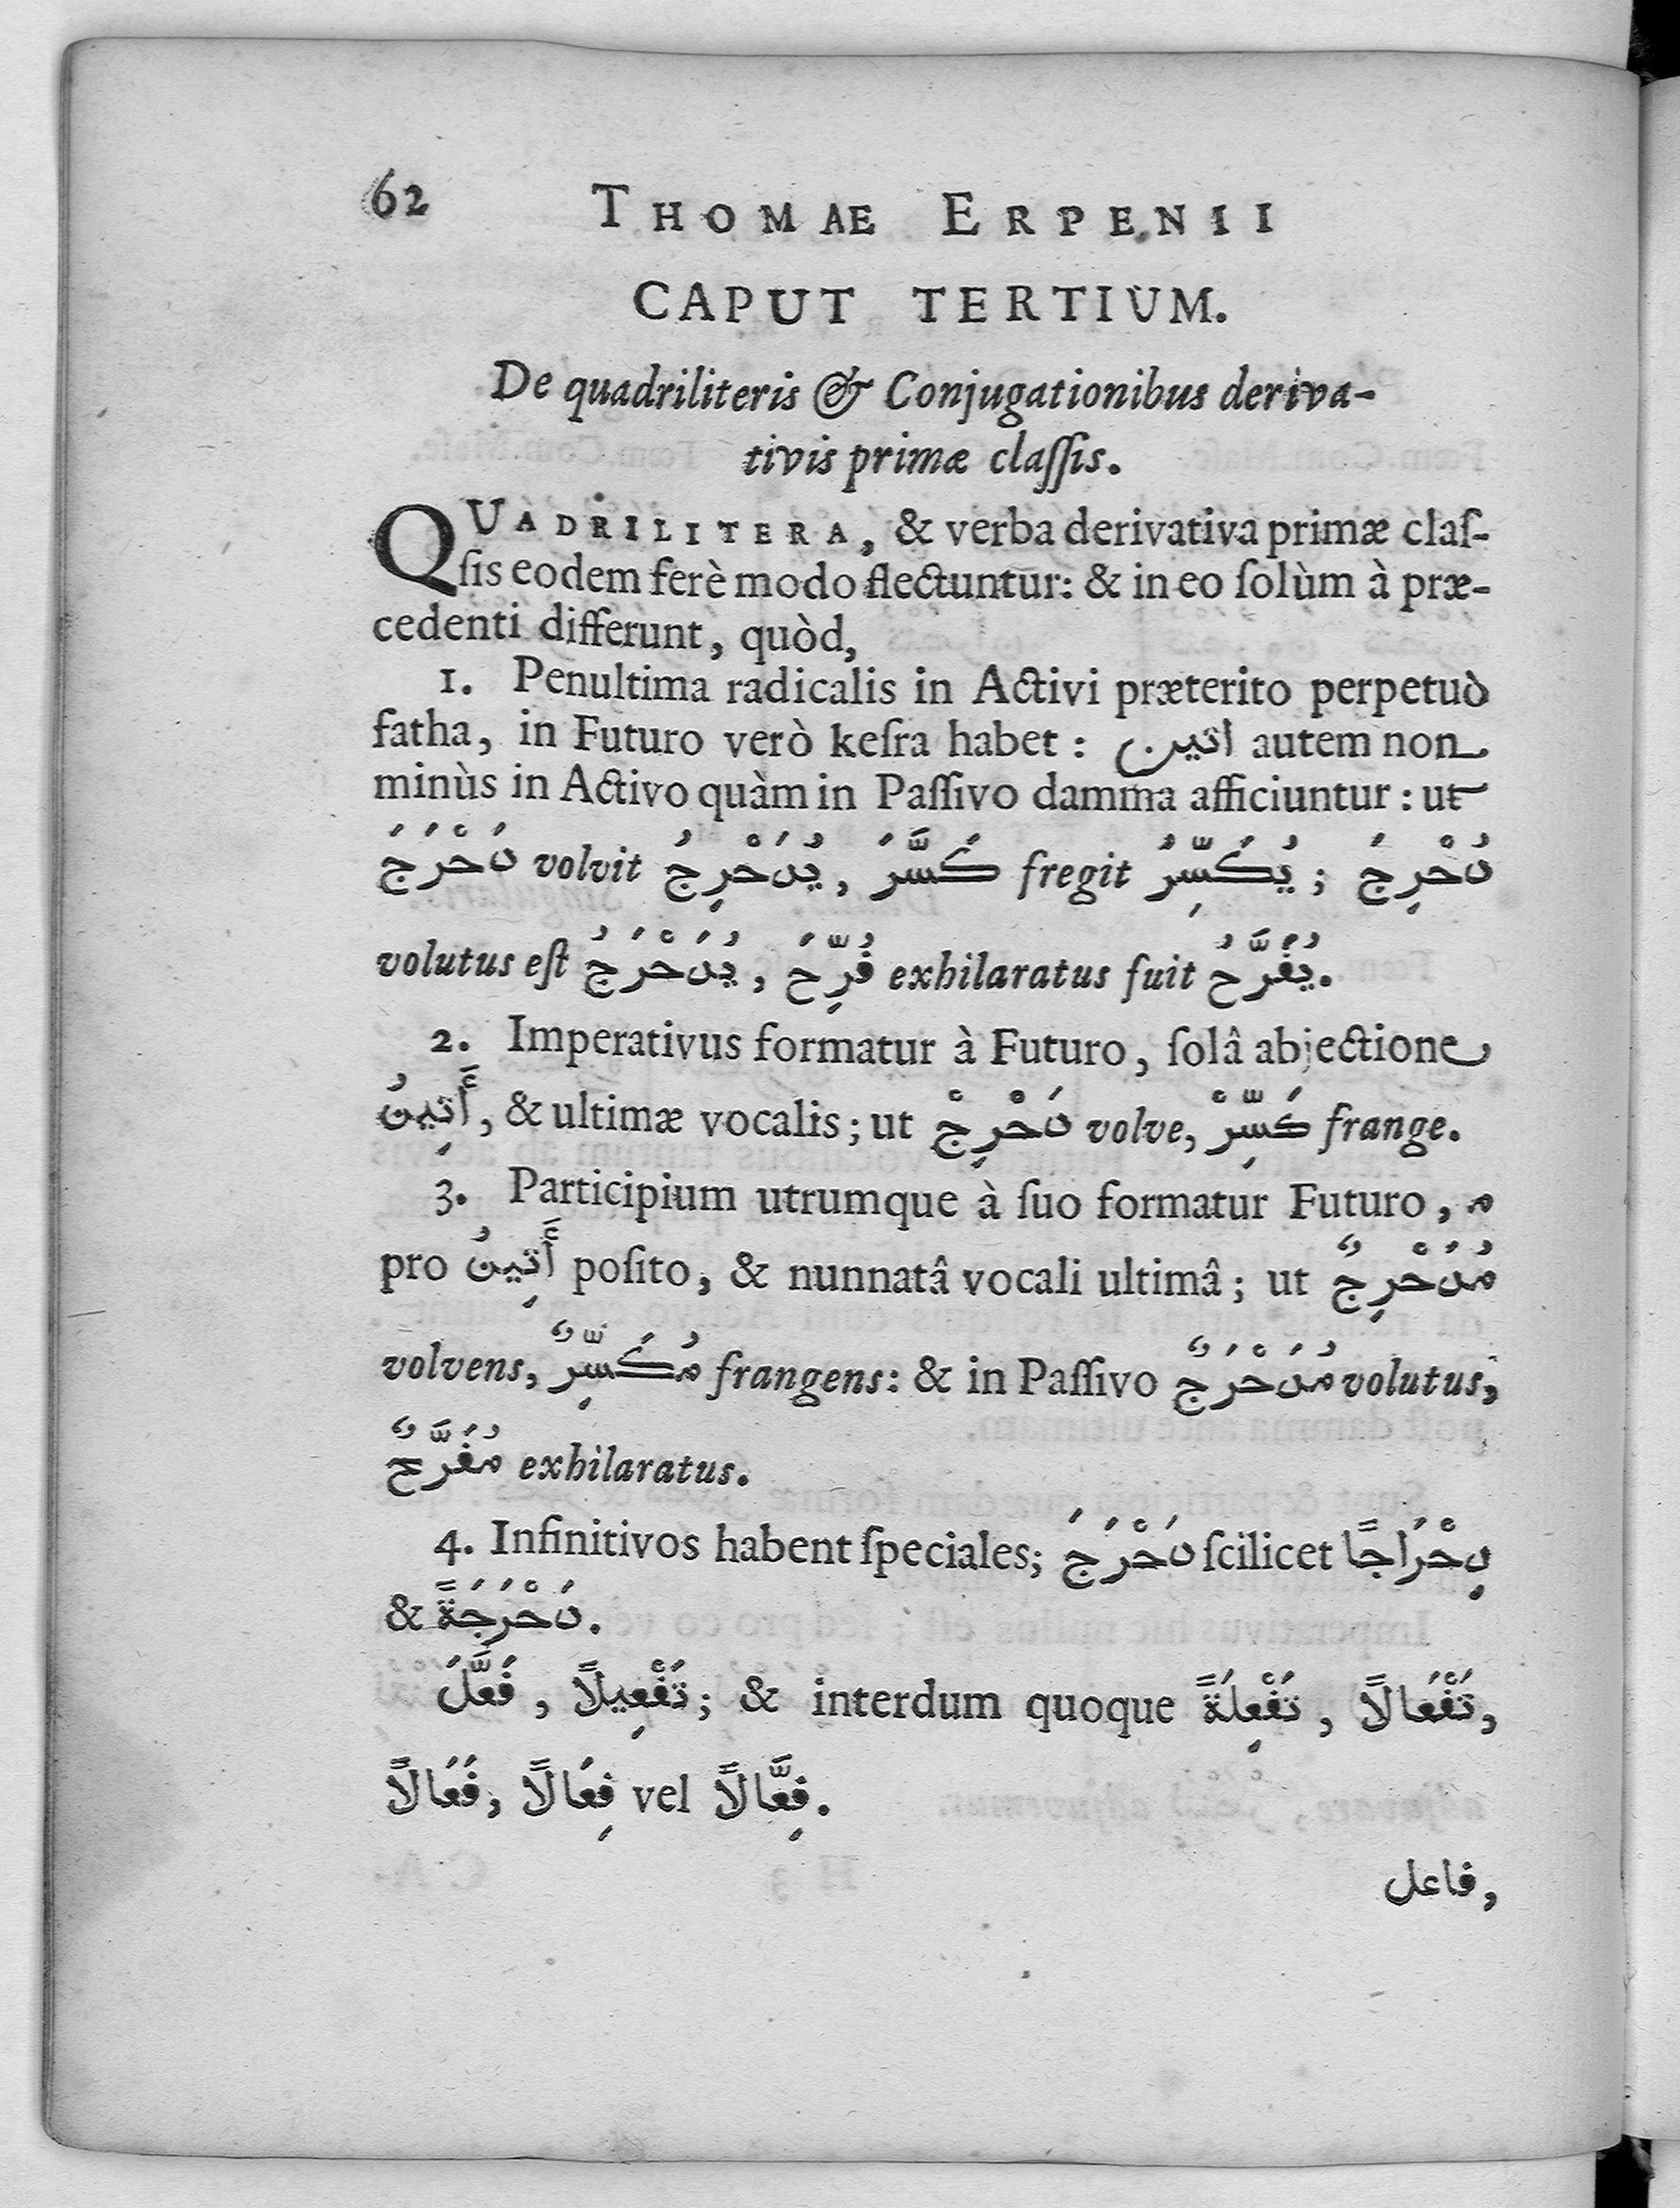 62 THOMAE ERPENII
CAPUT TERTIUM.
De quadriliteris & Conjugationibus deriva-
tivis primæ claſſis.
QUADRILITERA, & verba derivativa primæ claſ-
ſis eodem ferè modo flectuntur: & in eo ſolùm à præ-
cedenti differunt, quòd,
1. Penultima radicalis in Activi præterito perpetuò
fatha, in Futuro verò keſra habet: اتين autem non
minùs in Activo quàm in Paſſivo damma afficiuntur: ut
دَحْرَجَ volvit يُدَحْرِجُ, كَسَّرَ fregit يُكَسِّرُ; دُحْرِجَ
volutus eſt يُدَحْرَجُ, فُرِّحَ exhilaratus fuit يُفَرَّحُ.
2. Imperativus formatur à Futuro, ſolâ abjectione
أَتِينُ, & ultimæ vocalis; ut دَحْرِجْ volve, كَسِّرْ frange.
3. Participium utrumque à ſuo formatur Futuro, م
pro أَتِينُ poſito, & nunnatâ vocali ultimâ; ut مُدَحْرِجٌ
volvens, مُكَسِّرٌ frangens: & in Paſſivo مُدَحْرَجٌ volutus,
مُفَرَّحٌ exhilaratus.
4. Infinitivos habent ſpeciales; دَحْرَجَ ſcilicet دِحْرَاجًا
& دَحْرَجَةً.
فَعَّلَ, تَفْعِيلًا; & interdum quoque تَفْعِلَةً, تَفْعَالًا,
فَعَالًا, فِعَالًا vel فِعَّالًا.
فاعل,